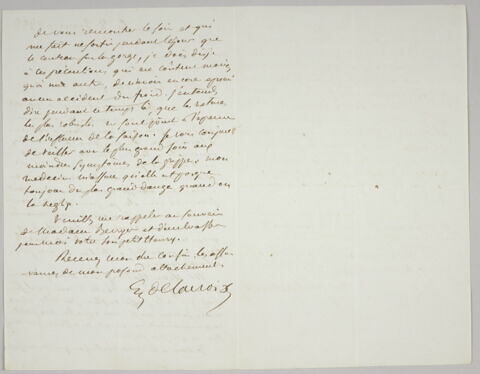 de vous rencontrer le soir et qui
me fait ne sortir pendant le jour que
le couteau sur la gorge, je dois déjà
à ces précautions qui me coutent moins
qu'à un autre, de n'avoir encore éprouvé
aucun accident du froid. J'entends
dire pendant ce temps là, que les natures
les plus robustes ne sont point à l'épreuve
de l'influence de la saison. Je vous conjure
de veiller avec le plus grand soin aux
moindres symptomes de la grippe, mon
medecin m'assure qu'elle est presque
toujours du plus grand danger quand on
la neglige.
Veuillez me rappeler au souvenir
de Madame Berryer et d'embrasser
pour moi votre bon petit Henry.
Recevez mon cher cousin les assu
rances de mon profond attachement.
Eug Delacroix